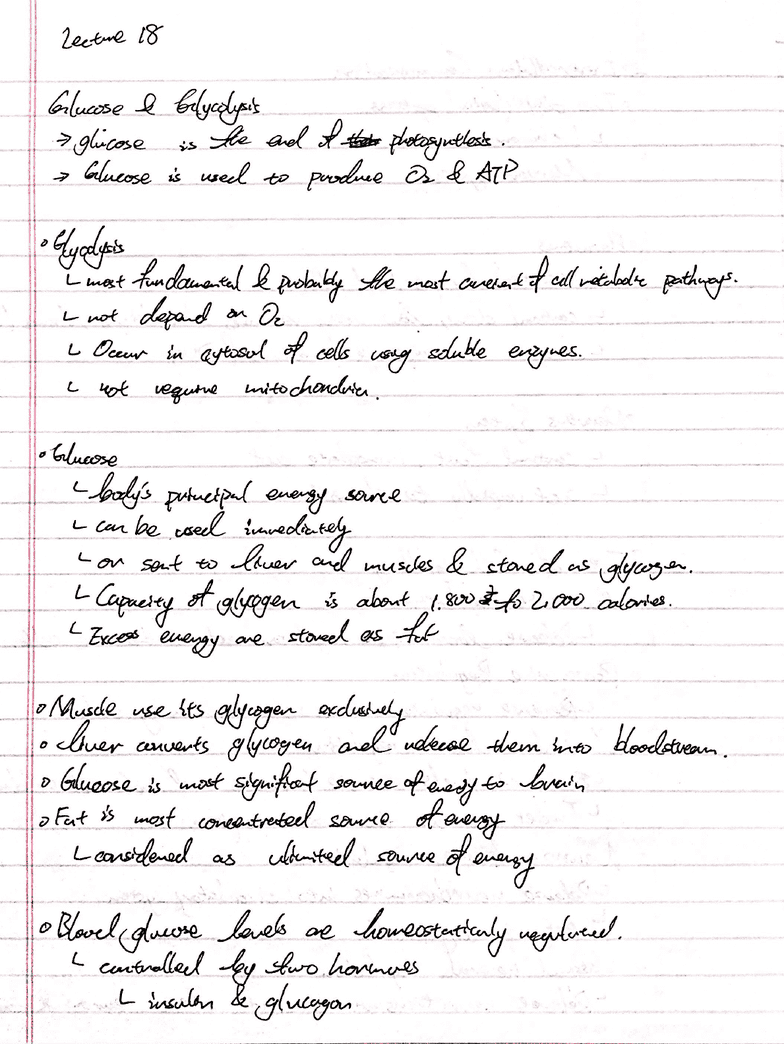 Lecture 18
Glucose & Glycolysis
→ glucose is the end of photosynthesis.
→ Glucose is used to produce O₂ & ATP
• Glycolysis
└ most fundamental & probably the most of cell metabolic pathways.
└ not depend on O₂
└ Occur in cytosol of cells using soluble enzymes.
└ not require mitochondria.
• Glucose
└ body's principal energy source
└ can be used immediately
└ or sent to liver and muscles & stored as glycogen.
└ Capacity of glycogen is about 1.800 to 2,000 calories.
└ Excess energy are stored as fat
• Muscle use its glycogen exclusively
• Liver converts glycogen and release them into bloodstream.
• Glucose is most significant source of energy to brain
• Fat is most concentrated source of energy
└ considered as source of energy
• Blood glucose levels are homeostatically regulated.
└ controlled by two hormones
└ insulin & glucagon